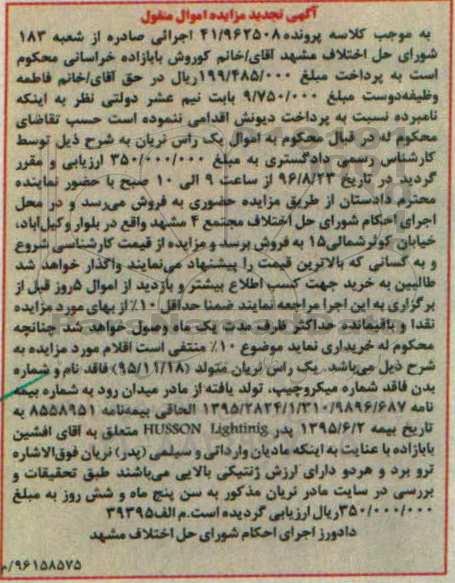 آگهی تجدید مزایده اموال منقول
به موجب کلاسه پرونده ۴۱/۹۶۲۵۰۸ اجرائی صادره از شعبه ۱۸۳
شورای حل اختلاف مشهد آقای/خانم کوروش بابازاده خراسانی محکوم
است به پرداخت مبلغ ۱۹۹/۴۸۵/۰۰۰ریال در حق آقای/خانم فاطمه
وظیفه‌دوست مبلغ ۹/۷۵۰/۰۰۰ بابت نیم عشر دولتی نظر به اینکه
نامبرده نسبت به پرداخت دیونش اقدامی ننموده است حسب تقاضای
محکوم له در قبال محکوم به اموال یک راس نریان به شرح ذیل توسط
کارشناس رسمی دادگستری به مبلغ ۳۵۰/۰۰۰/۰۰۰ ارزیابی و مقرر
گردید در تاریخ ۹۶/۸/۲۳ از ساعت ۹ الی ۱۰ صبح با حضور نماینده
محترم دادستان از طریق مزایده حضوری به فروش می‌رسد و در محل
اجرای احکام شورای حل اختلاف مجتمع ۴ مشهد واقع در بلوار وکیل‌آباد،
خیابان کوثرشمالی۱۵ به فروش برسد و مزایده از قیمت کارشناسی شروع
و به کسانی که بالاترین قیمت را پیشنهاد می‌نمایند واگذار خواهد شد
طالبین به خرید جهت کسب اطلاع بیشتر و بازدید از اموال ۵روز قبل از
برگزاری به این اجرا مراجعه نمایند ضمنا حداقل ۱۰٪ از بهای مورد مزایده
نقدا و باقیمانده حداکثر ظرف مدت یک ماه وصول خواهد شد چنانچه
محکوم له خریداری نماید موضوع ۱۰٪ منتفی است اقلام مورد مزایده به
شرح ذیل می‌باشد. یک راس نریان متولد (۹۵/۱۱/۱۸) فاقد نام و شماره
بدن فاقد شماره میکروچیپ، تولد یافته از مادر میدان رود به شماره بیمه
نامه ۱۳۹۵/۲۸۲۴/۱/۳۱۰/۹۸۹۶/۶۸۷ الحاقی بیمه‌نامه ۸۵۵۸۹۵۱ به
تاریخ بیمه ۱۳۹۵/۶/۲ پدر HUSSON Lightinig متعلق به آقای افشین
بابازاده با عنایت به اینکه مادیان وارداتی و سیلمی (پدر) نریان فوق‌الاشاره
ترو برد و هردو دارای ارزش ژنتیکی بالایی می‌باشند طبق تحقیقات و
بررسی در سایت مادر نریان مذکور به سن پنج ماه و شش روز به مبلغ
۳۵۰/۰۰۰/۰۰۰ریال ارزیابی گردیده است.م الف۳۹۳۹۵
دادورز اجرای احکام شورای حل اختلاف مشهد
۹۶۱۵۸۵۷۵/م